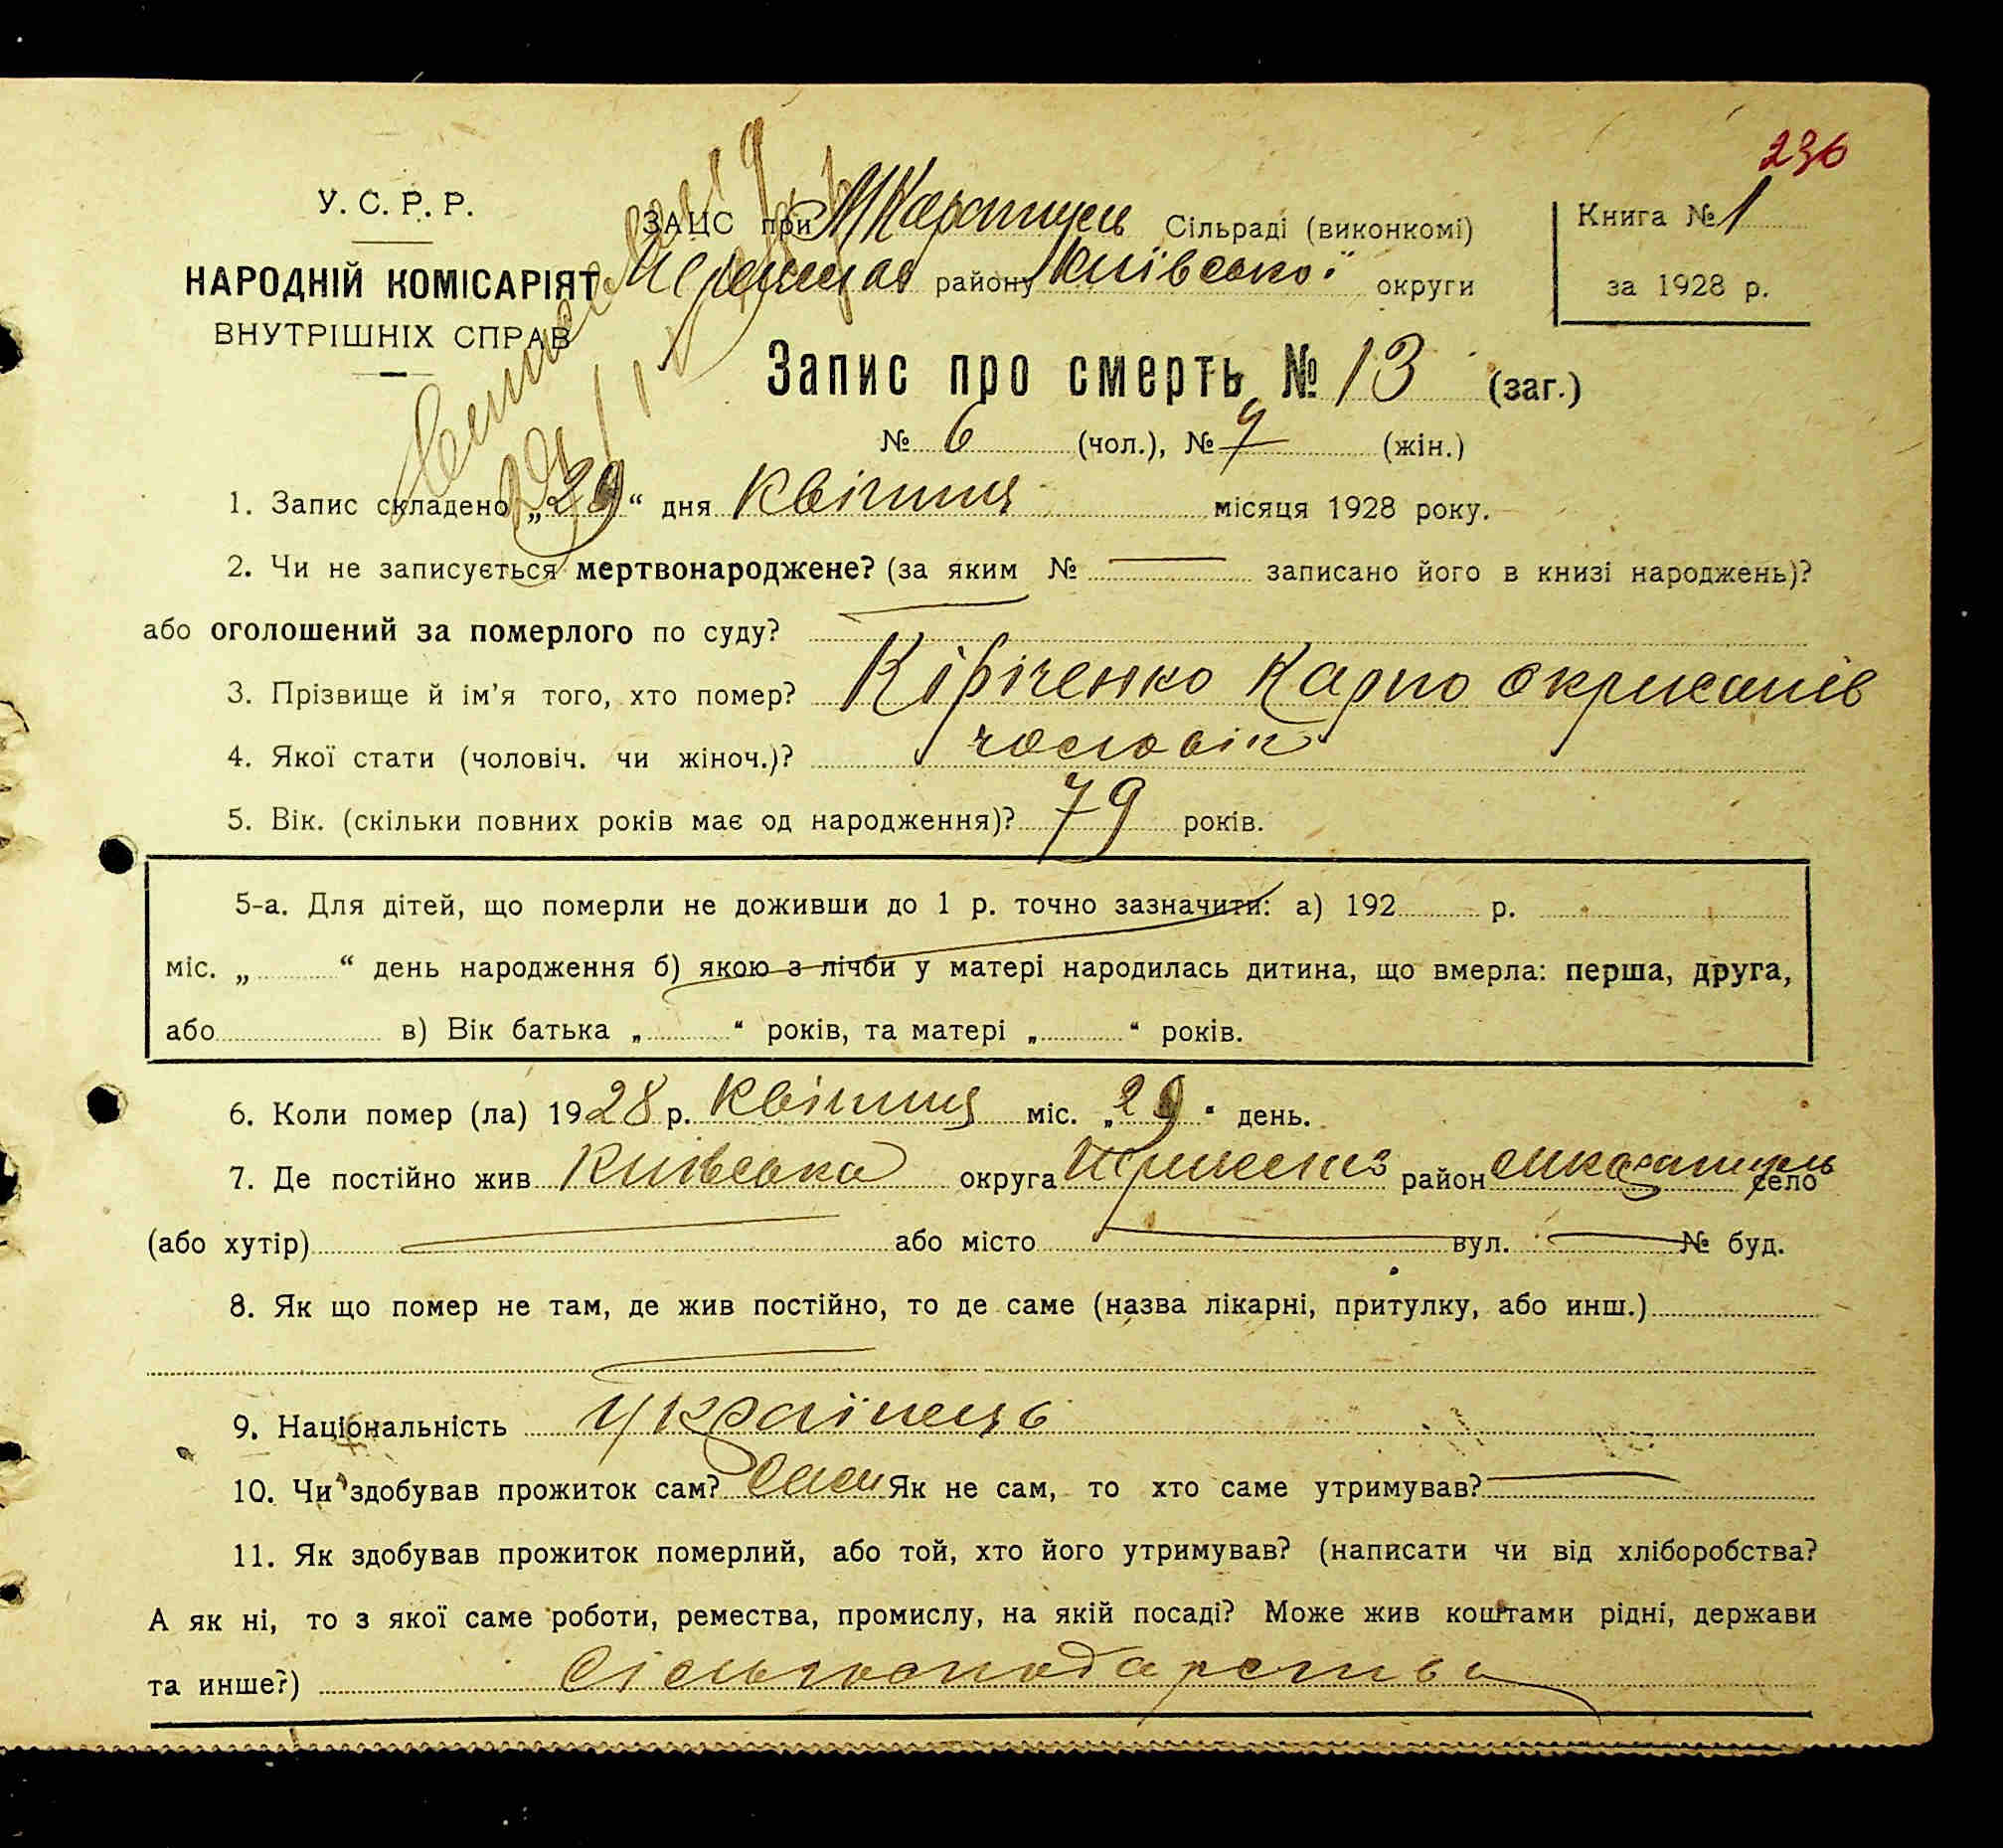 236
У. С. Р. Р.
НАРОДНІЙ КОМІСАРІЯТ
ВНУТРІШНІХ СПРАВ
ЗАЦС при МКаратуль Сільраді (виконкомі)
району Київської округи
Книга № 1
за 1928 р.
Запис про смерть № 13 (заг.)
№ 6 (чол.), № 7 (жін.)
1. Запис складено „29“ дня Квітня місяця 1928 року.
2. Чи не записується мертвонароджене? (за яким № записано його в книзі народжень)?
або оголошений за померлого по суду?
3. Прізвище й ім’я того, хто помер? Кіріченко Карпо
4. Якої стати (чоловіч. чи жіноч.)? чоловік
5. Вік. (скільки повних років має од народження)? 79 років.
5-а. Для дітей, що померли не доживши до 1 р. точно зазначити: а) 192 р.
міс. „ “ день народження б) якою з лічби у матері народилась дитина, що вмерла: перша, друга,
або в) Вік батька „ “ років, та матері „ “ років.
6. Коли помер (ла) 1928 р. Квітня міс. „29“ день.
7. Де постійно жив Київська округа район село
(або хутір) або місто вул. № буд.
8. Як що помер не там, де жив постійно, то де саме (назва лікарні, притулку, або инш.)
9. Національність Українець
10. Чи здобував прожиток сам? Сам Як не сам, то хто саме утримував?
11. Як здобував прожиток померлий, або той, хто його утримував? (написати чи від хліборобства?
А як ні, то з якої саме роботи, ремества, промислу, на якій посаді? Може жив коштами рідні, держави
та инше?) Сільгосподарства